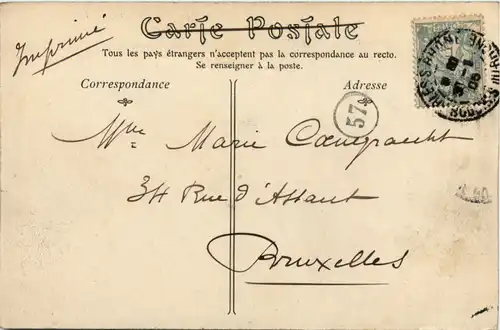 Carte Postale
Imprimé
Tous les pays étrangers n'acceptent pas la correspondance au recto.
Se renseigner à la poste.
Correspondance
Adresse
57
Mme Marie Coengracht
34 Rue d'Assaut
Bruxelles